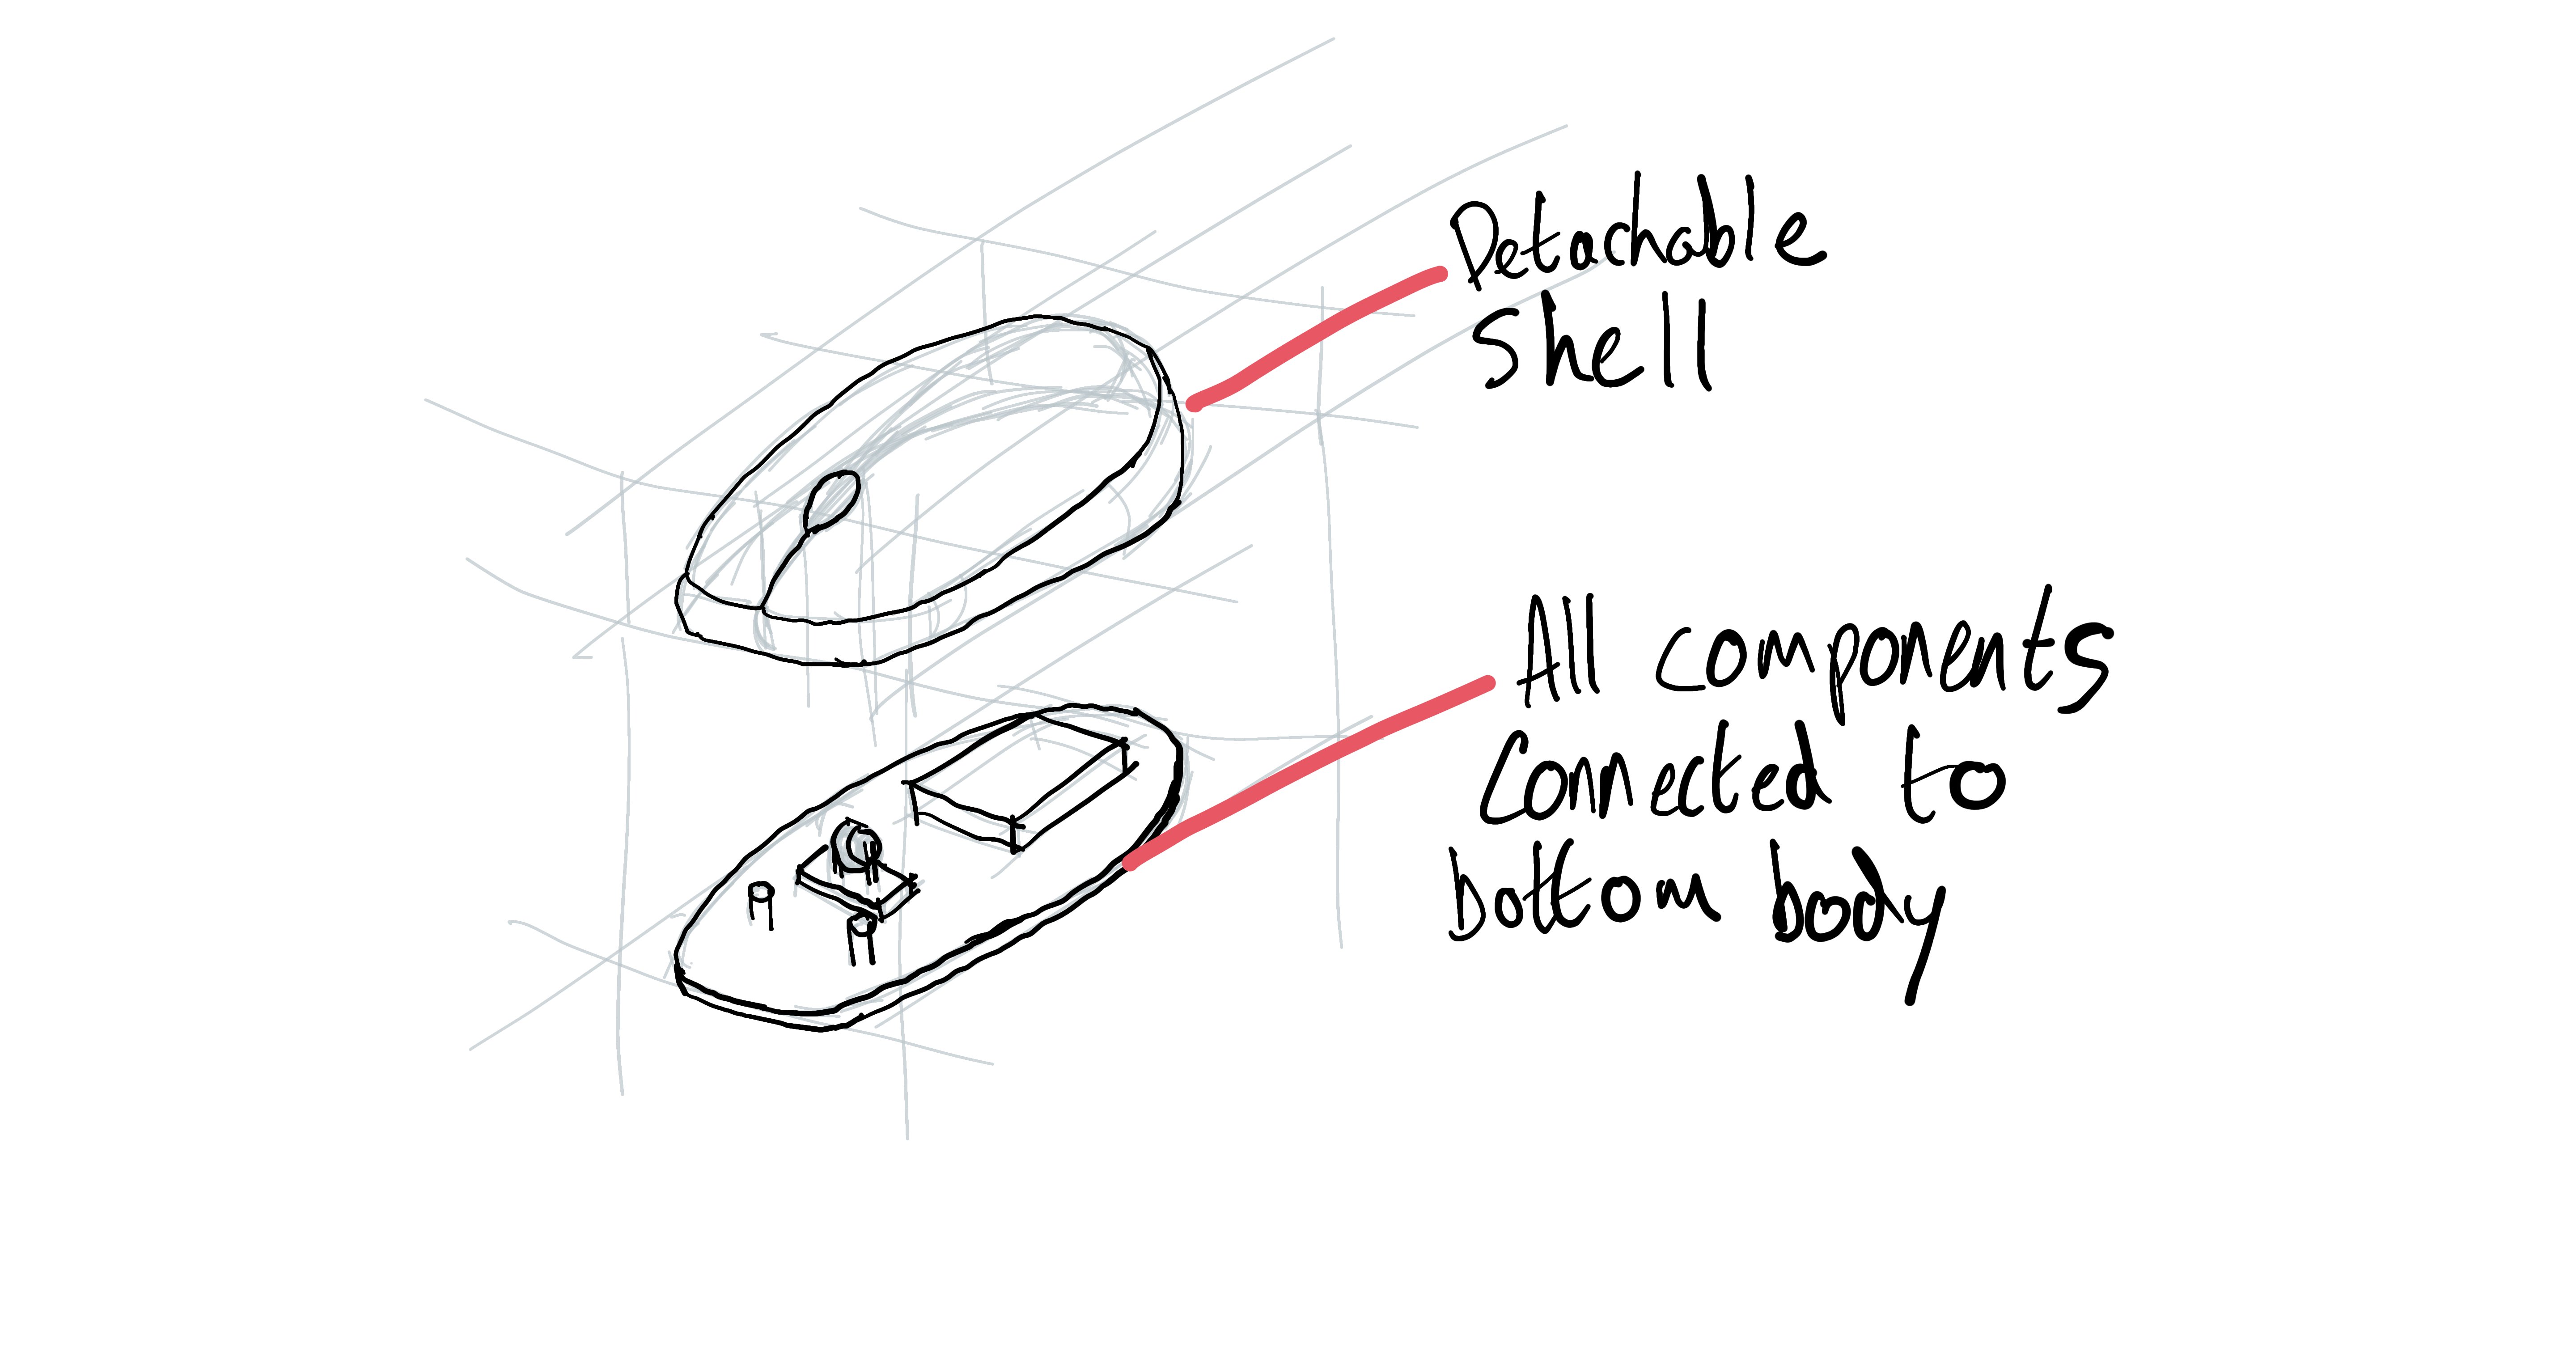 Detachable
Shell
All components
Connected to
bottom body